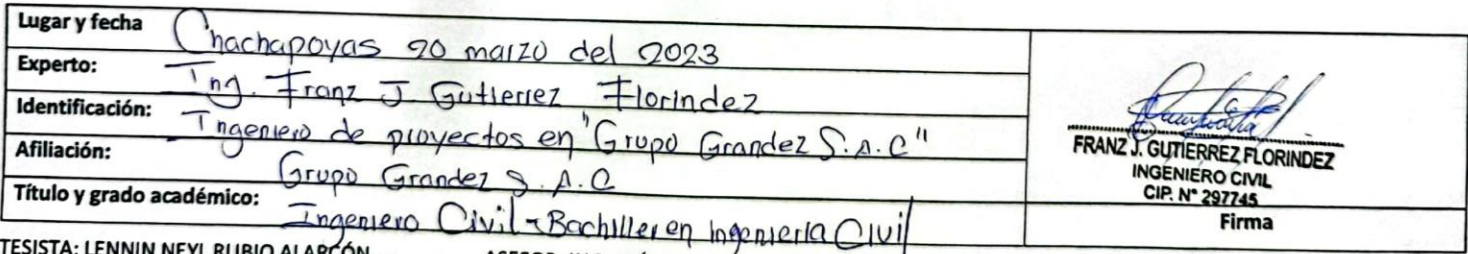 Lugar y fecha Chachapoyas 20 marzo del 2023
Experto: Ing. Franz J. Gutierrez Florindez
Identificación: Ingeniero de proyectos en "Grupo Grandez S.A.C"
Afiliación: Grupo Grandez S.A.C
Título y grado académico: Ingeniero Civil - Bachiller en ingenieria Civil
FRANZ J. GUTIERREZ FLORINDEZ
INGENIERO CIVIL
CIP. N° 297745
Firma
TESISTA: LENNIN NEYL RUBIO ALARCÓN